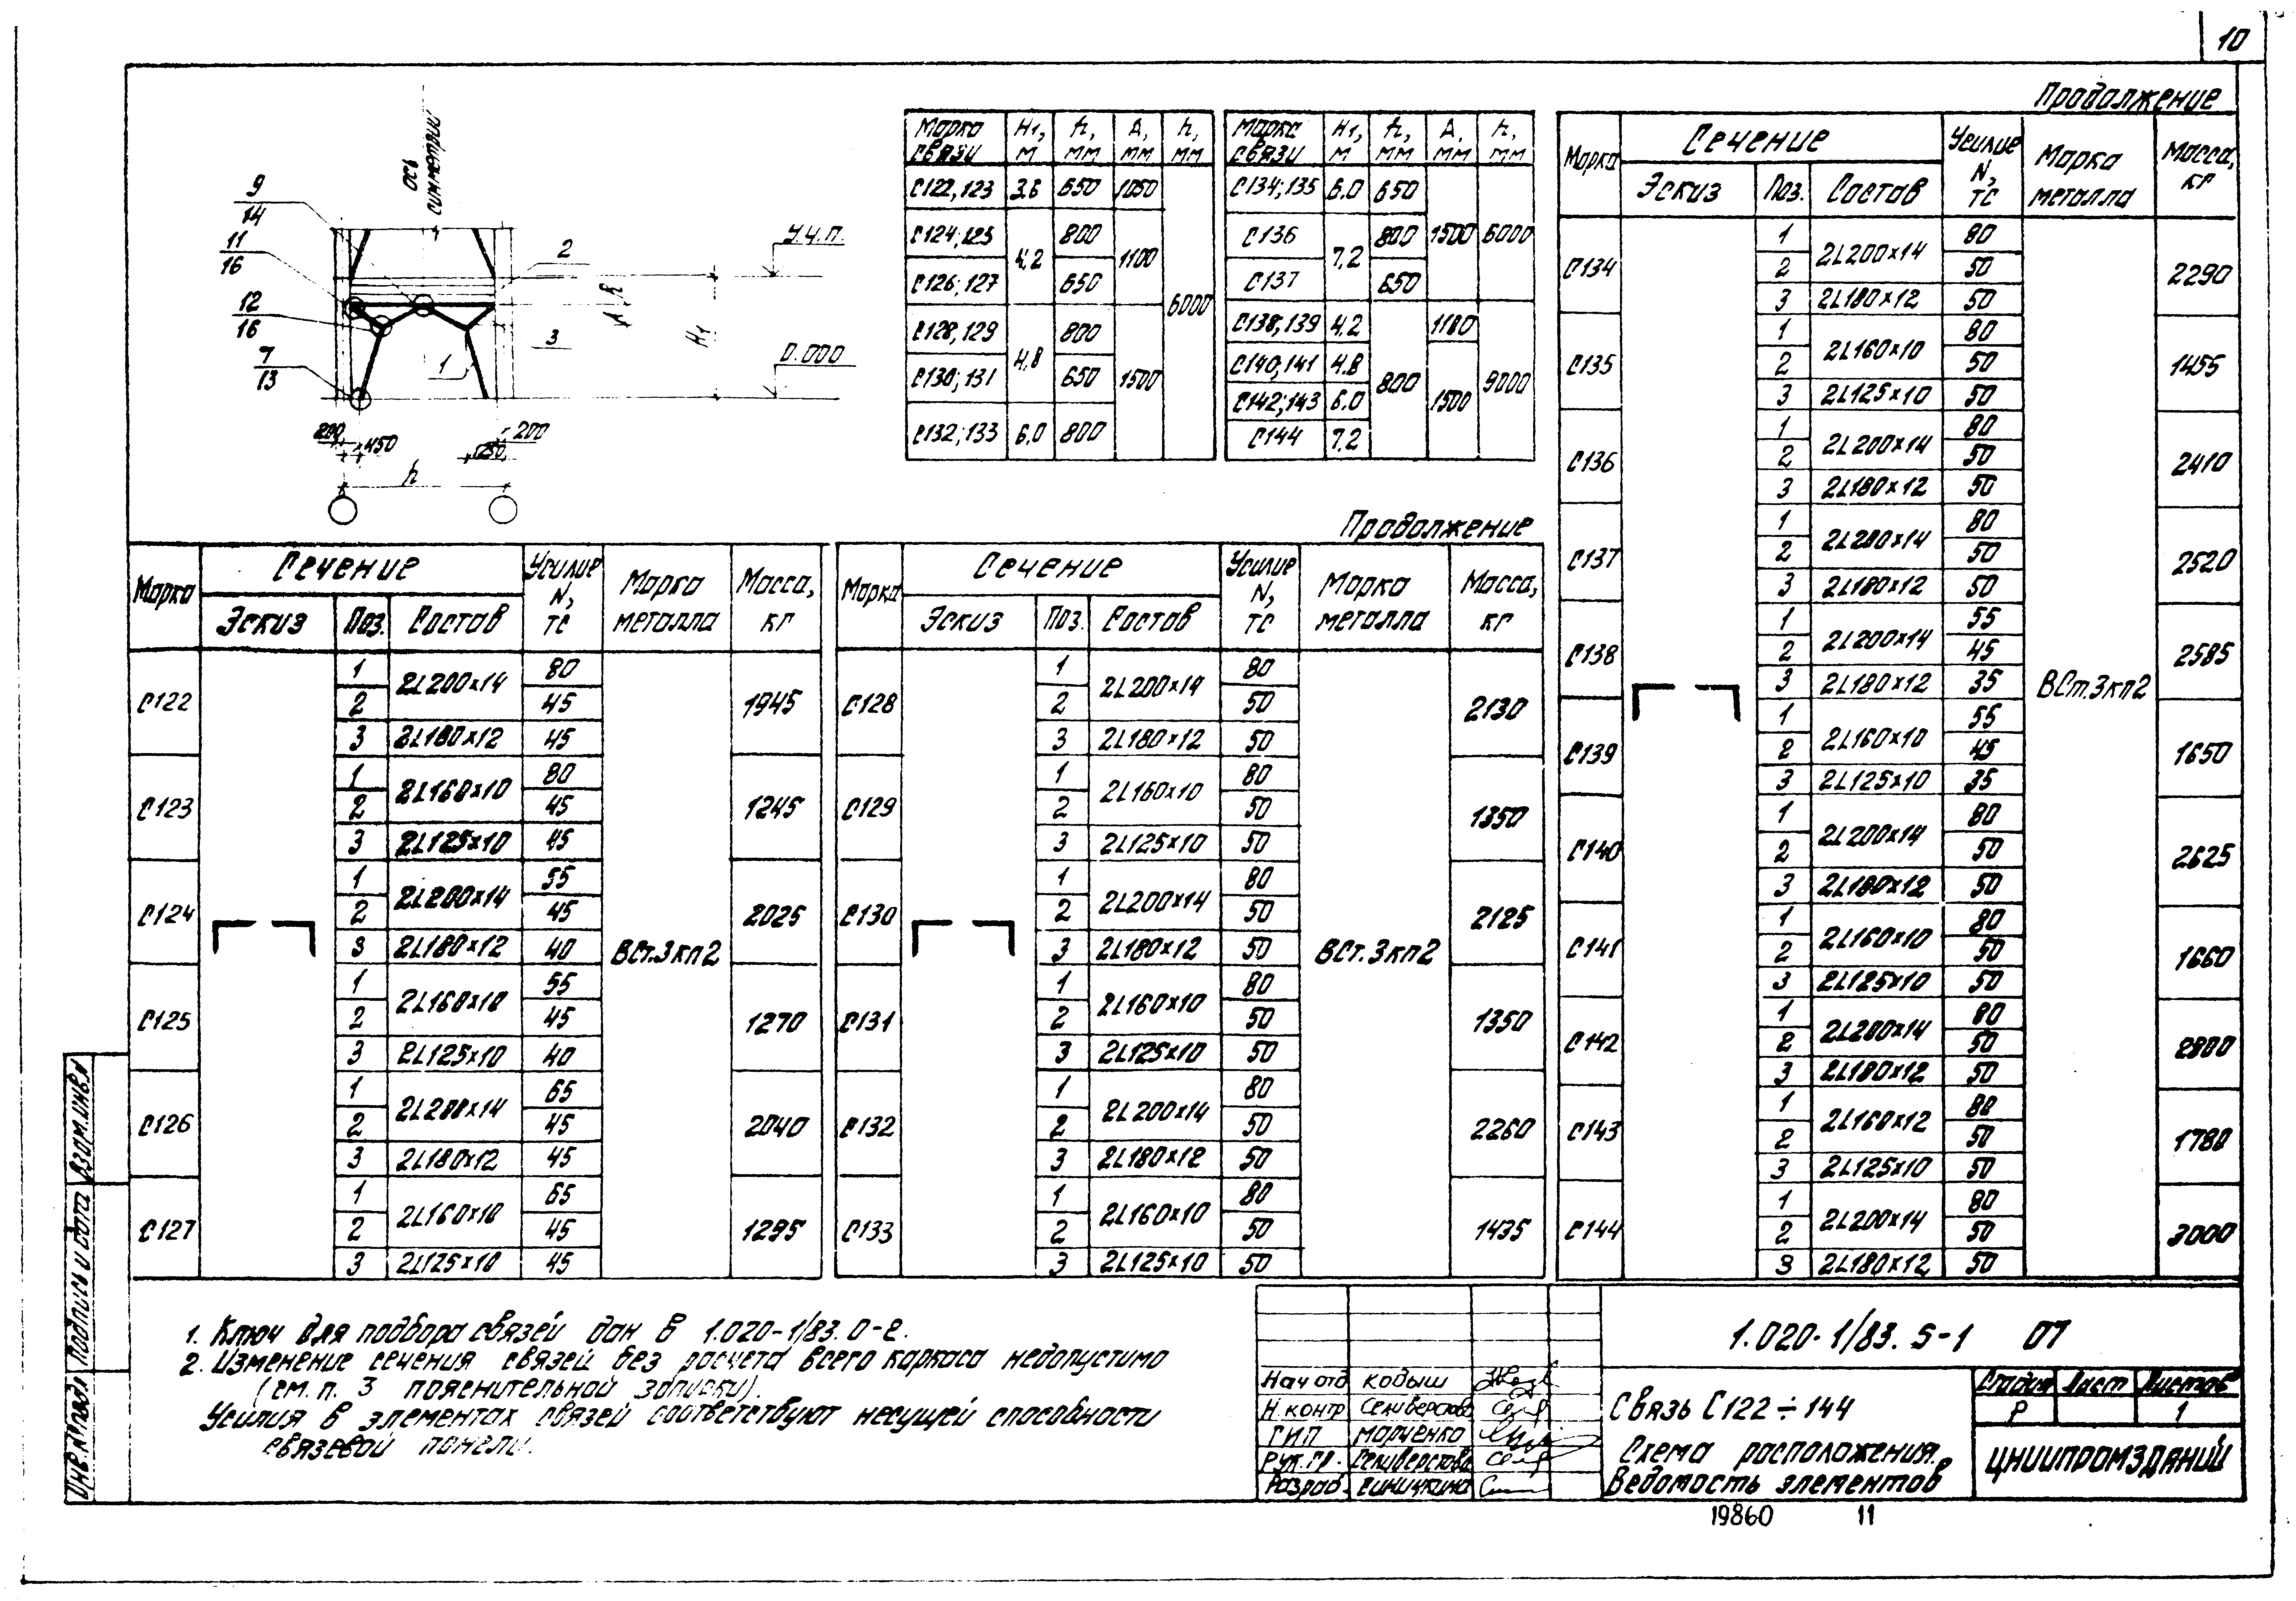 10
Продолжение
ось симметрии
9
14
11
16
12
16
7
13
2
3
1
У.ч.п.
0.000
H1
A
h
200
450
200
250
h
Марка связи H1, м h, мм A, мм h, мм
С122,123 3.6 650 1050 6000
С124;125 4,2 800 1100
С126;127 650
С128,129 4,8 800 1500
С130;131 650
С132;133 6,0 800
Марка связи H1, м h, мм A, мм h, мм
С134;135 6.0 650 1500 6000
С136 7,2 800
С137 650
С138,139 4,2 800 1100 9000
С140,141 4.8 1500
С142;143 6.0
С144 7,2
Марка Сечение Усилие N, тс Марка металла Масса, кг
Эскиз Поз. Состав
С122 1 2L200×14 80 ВСт.3кп2 1945
2 45
3 2L180×12 45
С123 1 2L160×10 80 1245
2 45
3 2L125×10 45
С124 1 2L200×14 55 2025
2 45
3 2L180×12 40
С125 1 2L160×10 55 1270
2 45
3 2L125×10 40
С126 1 2L200×14 65 2040
2 45
3 2L180×12 45
С127 1 2L160×10 65 1295
2 45
3 2L125×10 45
Продолжение
Марка Сечение Усилие N, тс Марка металла Масса, кг
Эскиз Поз. Состав
С128 1 2L200×14 80 ВСт.3кп2 2130
2 50
3 2L180×12 50
С129 1 2L160×10 80 1350
2 50
3 2L125×10 50
С130 1 2L200×14 80 2125
2 50
3 2L180×12 50
С131 1 2L160×10 80 1350
2 50
3 2L125×10 50
С132 1 2L200×14 80 2260
2 50
3 2L180×12 50
С133 1 2L160×10 80 1435
2 50
3 2L125×10 50
Марка Сечение Усилие N, тс Марка металла Масса, кг
Эскиз Поз. Состав
С134 1 2L200×14 80 ВСт.3кп2 2290
2 50
3 2L180×12 50
С135 1 2L160×10 80 1455
2 50
3 2L125×10 50
С136 1 2L200×14 80 2410
2 50
3 2L180×12 50
С137 1 2L200×14 80 2520
2 50
3 2L180×12 50
С138 1 2L200×14 55 2585
2 45
3 2L180×12 35
С139 1 2L160×10 55 1650
2 45
3 2L125×10 35
С140 1 2L200×14 80 2625
2 50
3 2L180×12 50
С141 1 2L160×10 80 1660
2 50
3 2L125×10 50
С142 1 2L200×14 80 2800
2 50
3 2L180×12 50
С143 1 2L160×12 80 1780
2 50
3 2L125×10 50
С144 1 2L200×14 80 3000
2 50
3 2L180×12 50
1. Ключ для подбора связей дан в 1.020-1/83.0-2.
2. Изменение сечения связей без расчета всего каркаса недопустимо
(см. п. 3 пояснительной записки).
Усилия в элементах связей соответствуют несущей способности
связевой панели.
Инв.№ подл. Подпись и дата Взам.инв.№
1.020-1/83.5-1 07
Нач.отд. Кодыш
Н.контр. Селиверстова
ГИП Марченко
Рук.гр. Селиверстова
Разраб. Синичкина
Связь С122÷144
Схема расположения.
Ведомость элементов
Стадия Лист Листов
Р 1
ЦНИИПРОМЗДАНИЙ
19860 11